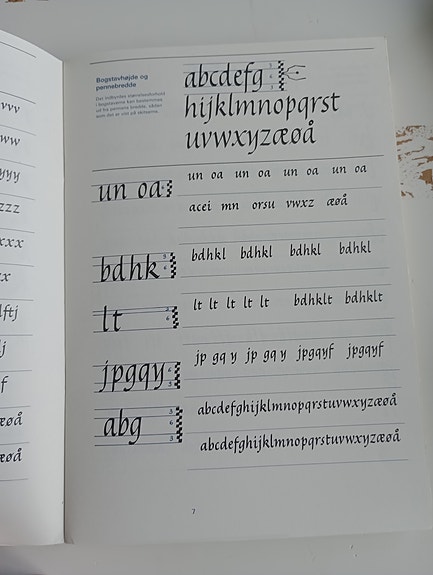 vvv
ww
yyy
zzz
xxx
x
lftj
j
f
æøå
æøå
Bogstavhøjde og
pennebredde
abcdefg
hijklmnopqrst
uvwxyzæøå
un oa
un oa un oa un oa un oa
acei mn orsu vwxz æøå
bdhk
bdhkl bdhkl bdhkl bdhkl
lt
lt lt lt lt lt bdhklt bdhklt
jpgqy
jp gq y jp gq y jpgqyf jpgqyf
abg
abcdefghijklmnopqrstuvwxyzæøå
abcdefghijklmnopqrstuvwxyzæøå
7